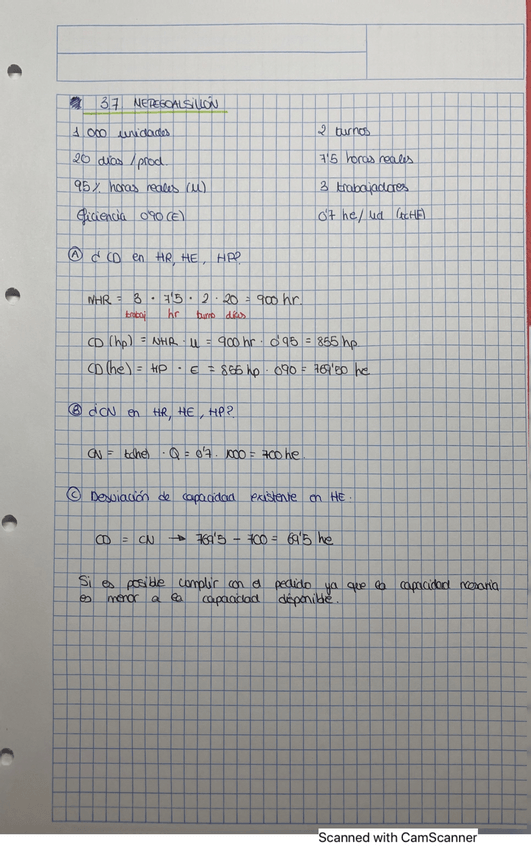 3.7 NEPEGOALSILLÓN
1 000 unidades
2 turnos
20 días / prod.
7'5 horas reales
95% horas reales (u)
3 trabajadores
Eficiencia 0'90 (E)
0'7 he/ud (tcHE)
A) d CD en HR, HE, HP?
NHR = 3 · 7'5 · 2 · 20 = 900 hr.
trabaj hr turno días
CD (hp) = NHR · u = 900 hr · 0'95 = 855 hp
CD (he) = HP · E = 855 hp · 0'90 = 769'50 he
B) d CN en HR, HE, HP?
CN = tc(he) · Q = 0'7 · 1000 = 700 he.
C) Desviación de capacidad existente en HE.
CD = CN → 769'5 - 700 = 69'5 he
Si es posible cumplir con el pedido ya que la capacidad necesaria
es menor a la capacidad disponible.
Scanned with CamScanner